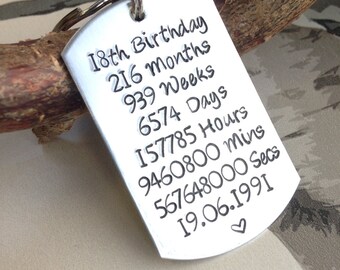 18th Birthday
216 Months
939 Weeks
6574 Days
157785 Hours
9460800 Mins
567648000 Secs
19.06.1991